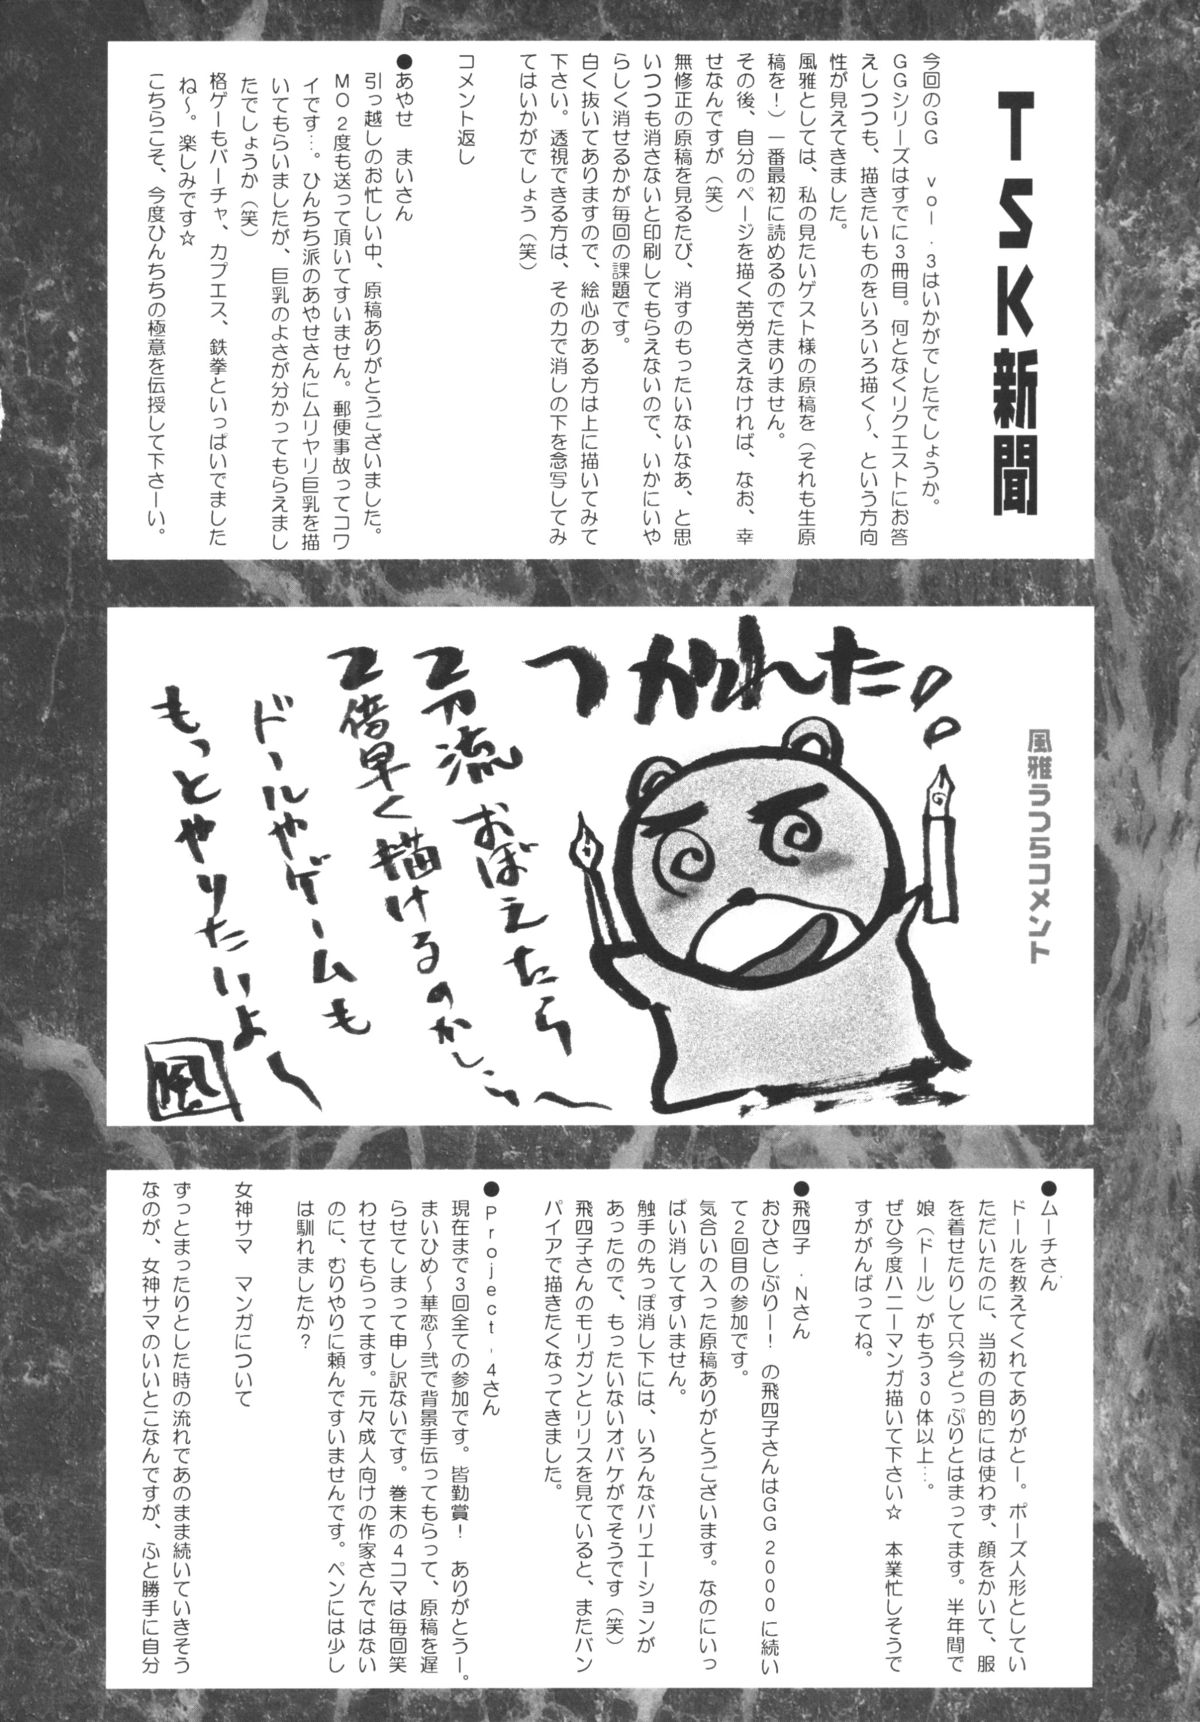 TSK新聞
今回のGG vol.3はいかがでしたでしょうか。
GGシリーズはすでに3冊目。何となくリクエストにお答
えしつつも、描きたいものをいろいろ描く〜、という方向
性が見えてきました。
風雅としては、私の見たいゲスト様の原稿を(それも生原
稿を!)一番最初に読めるのでたまりません。
その後、自分のページを描く苦労さえなければ、なお、幸
せなんですが(笑)
無修正の原稿を見るたび、消すのもったいないなあ、と思
いつつも消さないと印刷してもらえないので、いかにいや
らしく消せるかが毎回の課題です。
白く抜いてありますので、絵心のある方は上に描いてみて
下さい。透視できる方は、その力で消しの下を念写してみ
てはいかがでしょう(笑)
コメント返し
●あやせ まいさん
引っ越しのお忙しい中、原稿ありがとうございました。
MO2度も送って頂いてすいません。郵便事故ってコワ
イです…。ひんちち派のあやせさんにムリヤリ巨乳を描
いてもらいましたが、巨乳のよさが分かってもらえまし
たでしょうか(笑)
格ゲーもバーチャ、カプエス、鉄拳といっぱいでました
ね〜。楽しみです☆
こちらこそ、今度ひんちちの極意を伝授して下さーい。
風雅うつらコメント
つかれた。
2刀流おぼえたら
2倍早く描けるのかしら〜
ドールやゲームも
もっとやりたいよ〜
風
●ムーチさん
ドールを教えてくれてありがとー。ポーズ人形としてい
ただいたのに、当初の目的には使わず、顔をかいて、服
を着せたりして只今どっぷりとはまってます。半年間で
娘(ドール)がもう30体以上…。
ぜひ今度ハニーマンガ描いて下さい☆ 本業忙しそうで
すががんばってね。
●飛四子.Nさん
おひさしぶりー!の飛四子さんはGG2000に続い
て2回目の参加です。
気合いの入った原稿ありがとうございます。なのにいっ
ぱい消してすいません。
触手の先っぽ消し下には、いろんなバリエーションが
あったので、もったいないオバケがでそうです(笑)
飛四子さんのモリガンとリリスを見ていると、またバン
パイアで描きたくなってきました。
●Project.4さん
現在まで3回全ての参加です。皆勤賞! ありがとうー。
まいひめ〜華恋〜弐で背景手伝ってもらって、原稿を遅
らせてしまって申し訳ないです。巻末の4コマは毎回笑
わせてもらってます。元々成人向けの作家さんではない
のに、むりやりに頼んですいませんです。ペンには少し
は馴れましたか?
女神サマ マンガについて
ずっとまったりとした時の流れであのまま続いていきそう
なのが、女神サマのいいとこなんですが、ふと勝手に自分